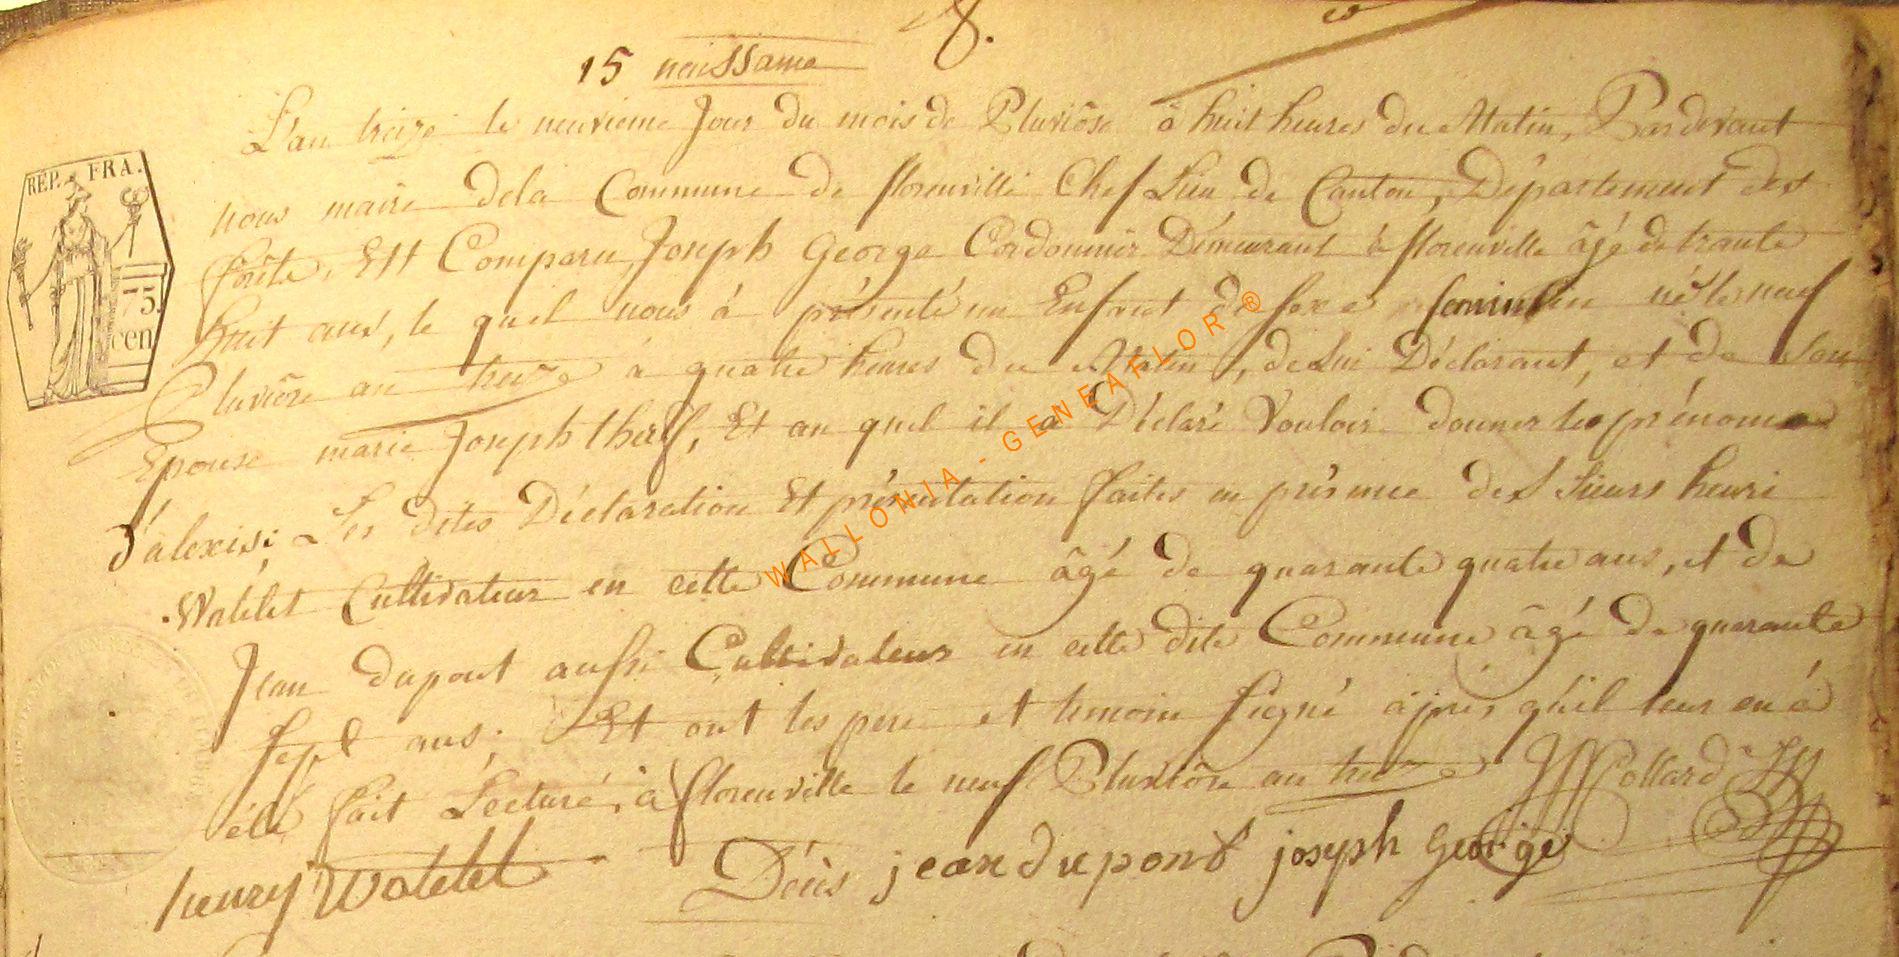 8.
15 naissance
L'an treize le neuvieme Jour du mois de Pluviôse à huit heures du Matin, Pardevant
nous maire dela Commune de florenville Chef Lieu de Canton, Département des
forêts, Est Comparu, Joseph George Cordonnier Démeurant à florenville âgé de trante
huit ans, le quel nous à présenté un Enfant de sexe feminin né le neuf
Pluviôse an treize à quatre heures du Matin, de Lui Déclarant, et de Son
Epouse marie Joseph, Et au quel il a Déclaré Vouloir donner les prénoms
d'alexis: Les dites Déclaration Et présentation faites en présence des Sieurs henri
Watelet Cultivateur en cette Commune âgé de quarante quatre ans, et de
Jean dupont aussi Cultivateur en cette dite Commune âgé de quarante
sept ans; Et ont les pere et temoin signé àprés qu'il leur en à
été fait Lecture, à florenville le neuf Pluviôse an treize Collard
henry Watelet jean dupont joseph george
REP. FRA.
75.
cen
WALLONIA - GENEAFLOR ®